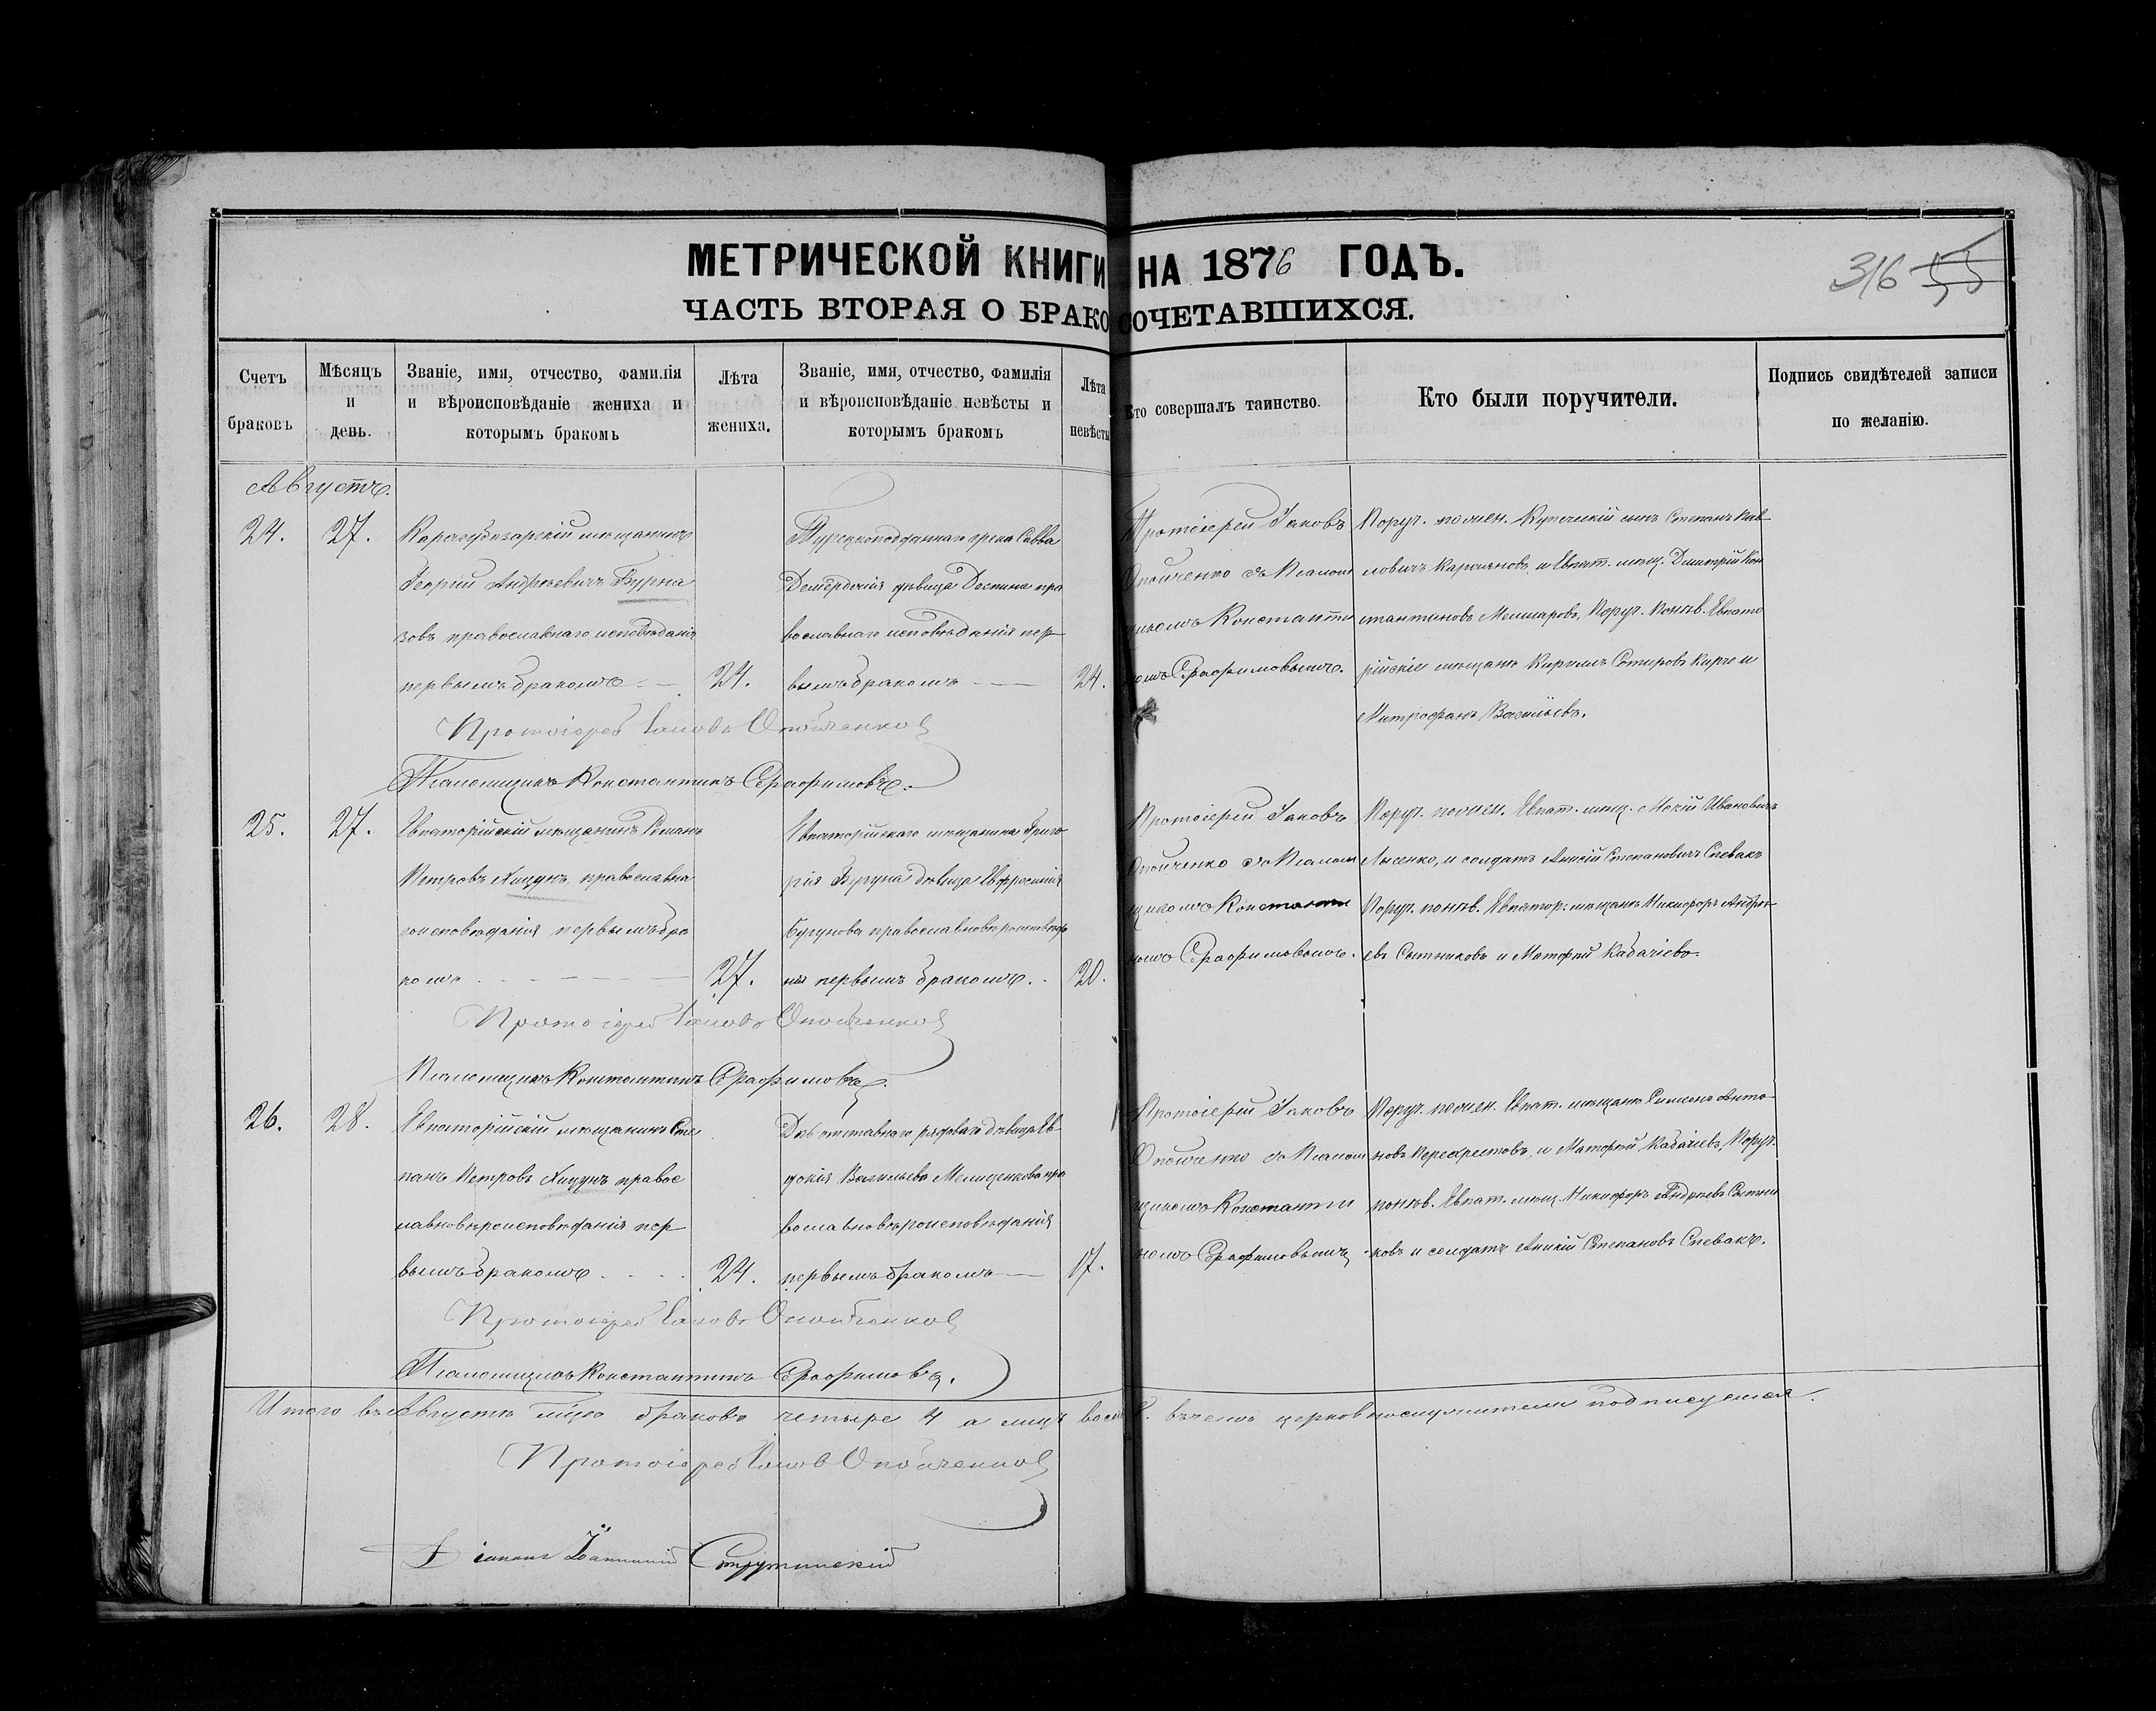 МЕТРИЧЕСКОЙ КНИГИ НА 1876 ГОДЪ.
ЧАСТЬ ВТОРАЯ О БРАКОСОЧЕТАВШИХСЯ.
316 55
Счетъ браковъ
Мѣсяцъ и день.
Званіе, имя, отчество, фамилія и вѣроисповѣданіе жениха и которымъ бракомъ
Лѣта жениха.
Званіе, имя, отчество, фамилія и вѣроисповѣданіе невѣсты и которымъ бракомъ
Лѣта невѣсты
Кто совершалъ таинство.
Кто были поручители.
Подпись свидѣтелей записи по желанію.
Августъ.
24. 27.
Карасубазарскій мѣщанинъ
Георгій Андреевичъ Бурна
зовъ православнаго исповѣданія
первымъ бракомъ 24.
Турецкоподданнаго грека Савва
дѣвица Деспина пра
вославнаго исповѣданія пер
вымъ бракомъ 24.
Протоіерей Іаковъ
Опойченко съ Псалом
щикомъ Константи
номъ Серафимовымъ.
Поруч. по жен. Купеческій сынъ Степанъ Пав
ловичъ и Евпат. мѣщ. Дмитрій Кон
стантиновъ Поруч. по нев. Евпато
рійскіе мѣщане Кириллъ Сотировъ Кирче и
Митрофанъ Васильевъ.
Протоіерей Іаковъ Опойченко
Псаломщикъ Константинъ Серафимовъ.
25. 27.
Евпаторійскій мѣщанинъ Романъ
Петровъ Хицунъ православна
го исповѣданія первымъ бра
комъ 27.
Евпаторійскаго мѣщанина Григо
рія Бугуна дѣвица Евфросинія
Бугунова православновѣроисповѣда
нія первымъ бракомъ. 20.
Протоіерей Іаковъ
Опойченко съ Псалом
щикомъ Константи
номъ Серафимовымъ.
Поруч. по жен. Евпат. мѣщ. Мокій Ивановичъ
Лысенко, и солдатъ Аникій Степановичъ Спевакъ
Поруч. по нев. Евпатор. мѣщане Никифоръ Андре
евъ Сытниковъ и Матфей Кабачіевъ.
Протоіерей Іаковъ Опойченко
Псаломщикъ Константинъ Серафимовъ.
26. 28.
Евпаторійскій мѣщанинъ Сте
панъ Петровъ Хицунъ правос
лавновѣроисповѣданія пер
вымъ бракомъ 24.
Дочь отставнаго рядоваго дѣвица Ев
докія Васильева Мелиценкова пра
вославновѣроисповѣданія
первымъ бракомъ 17.
Протоіерей Іаковъ
Опойченко съ Псалом
щикомъ Константи
номъ Серафимовымъ
Поруч. по жен. Евпат. мѣщане Симеонъ Анто
новъ Перехрестовъ, и Матфей Кабачіевъ, Поруч.
по нев. Евпат. мѣщ. Никифоръ Андреевъ Сытни
ковъ и солдатъ Аникій Степановъ Спевакъ.
Протоіерей Іаковъ Опойченко
Псаломщикъ Константинъ Серафимовъ.
Итого въ Августѣ м-цѣ браковъ четыре 4 а лицъ восемь 8. въ чемъ церковнослужители подписуемся.
Протоіерей Іаковъ Опойченко
Діаконъ Іоанникій Струтинскій